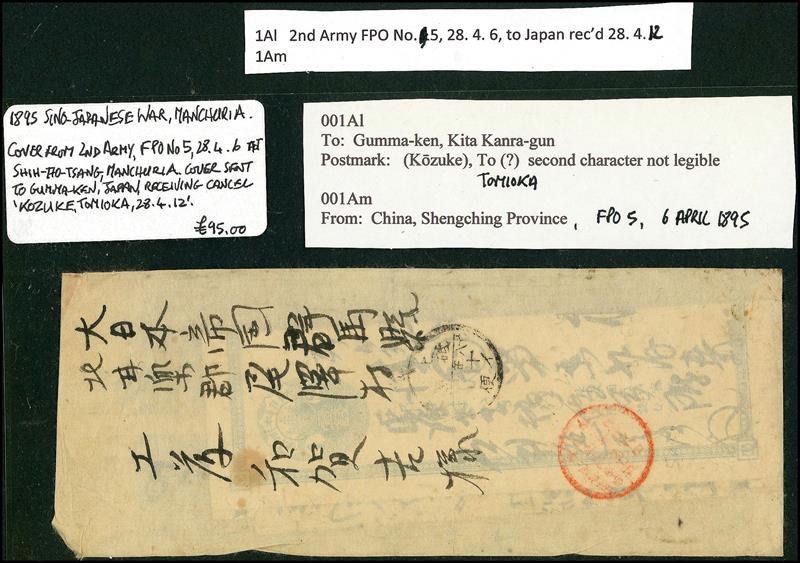 1Al 2nd Army FPO No. 5, 28. 4. 6, to Japan rec'd 28. 4. 12
1Am
1895 SINO-JAPANESE WAR, MANCHURIA.
COVER FROM 2ND ARMY, FPO NO 5, 28.4.6 AT
SHIH-HO-TSANG, MANCHURIA. COVER SENT
TO GUMMA-KEN, JAPAN, RECEIVING CANCEL
'KOZUKE, TOMIOKA, 28.4.12'.
£95.00
001Al
To: Gumma-ken, Kita Kanra-gun
Postmark: (Kōzuke), To (?) second character not legible
TOMIOKA
001Am
From: China, Shengching Province, FPO 5, 6 APRIL 1895
大日本帝国群馬県
北甘楽郡尾澤村
工藤和賀吉様